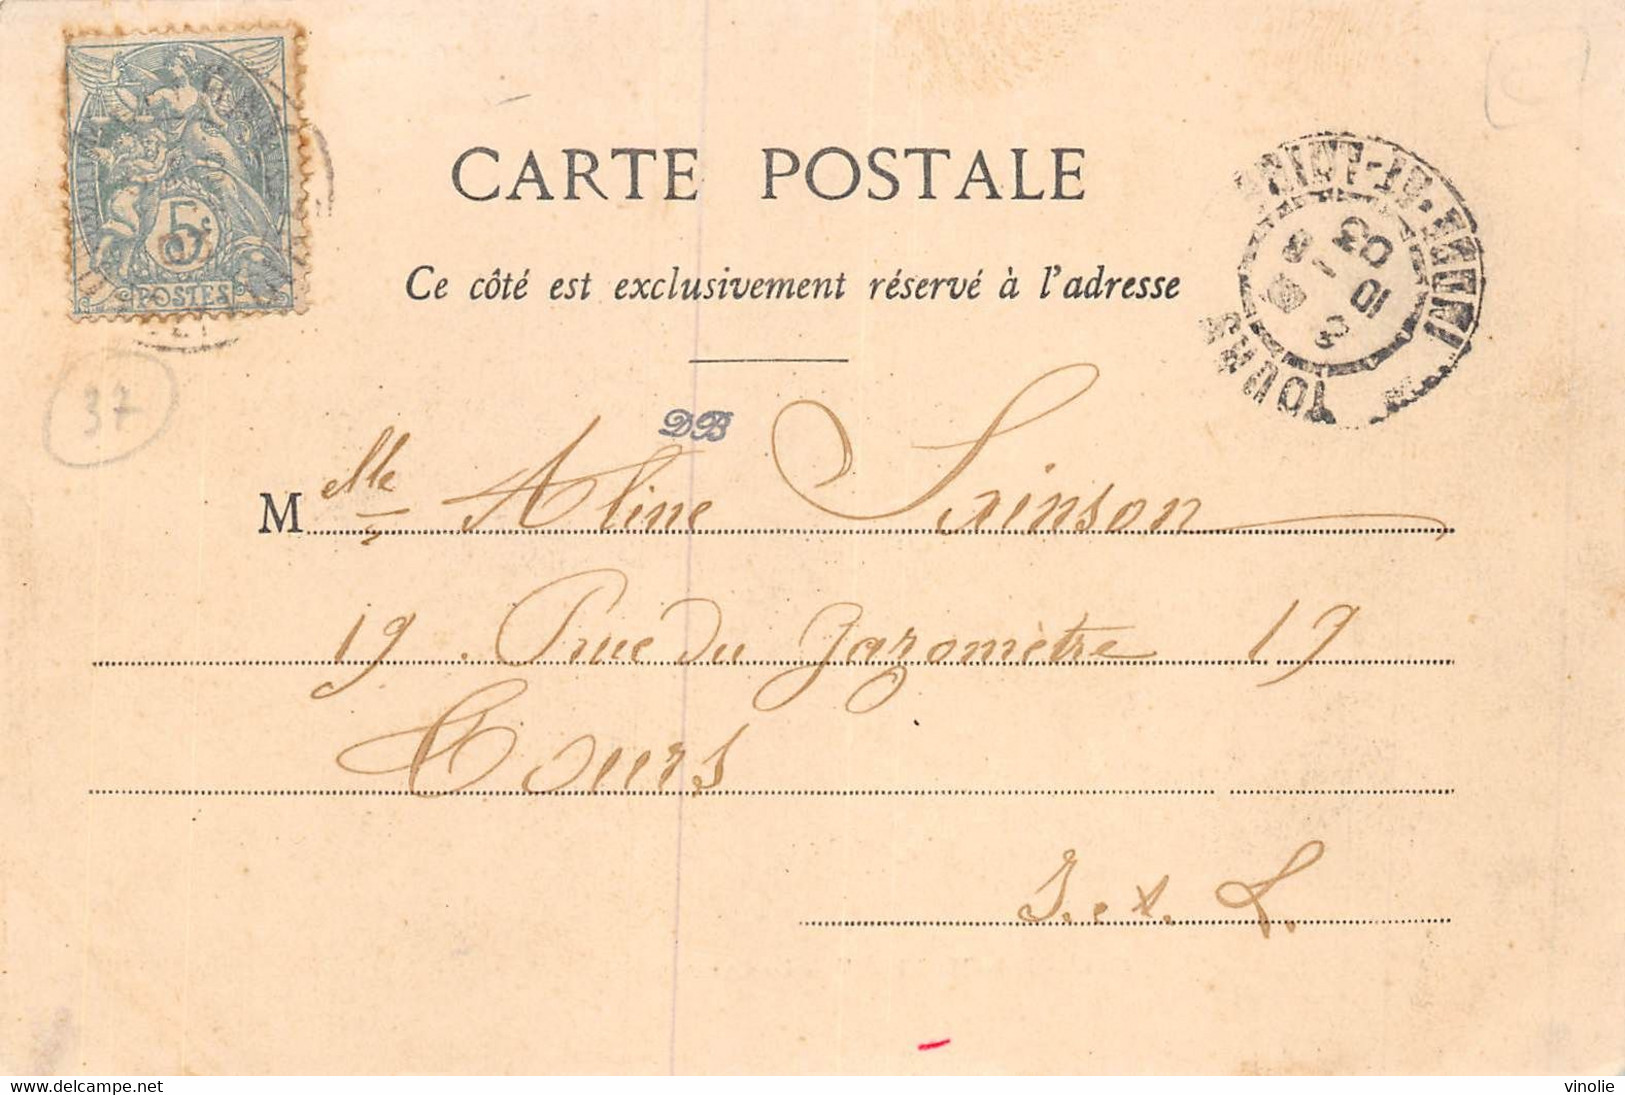 5c
POSTES
CARTE POSTALE
Ce côté est exclusivement réservé à l'adresse
TOURS
INDRE-ET-LOIRE
10
03
37
DB
Melle Aline Sainson
19. Rue du Gazomètre 19
Tours
I. et. L.
delcampe.net
vinolie